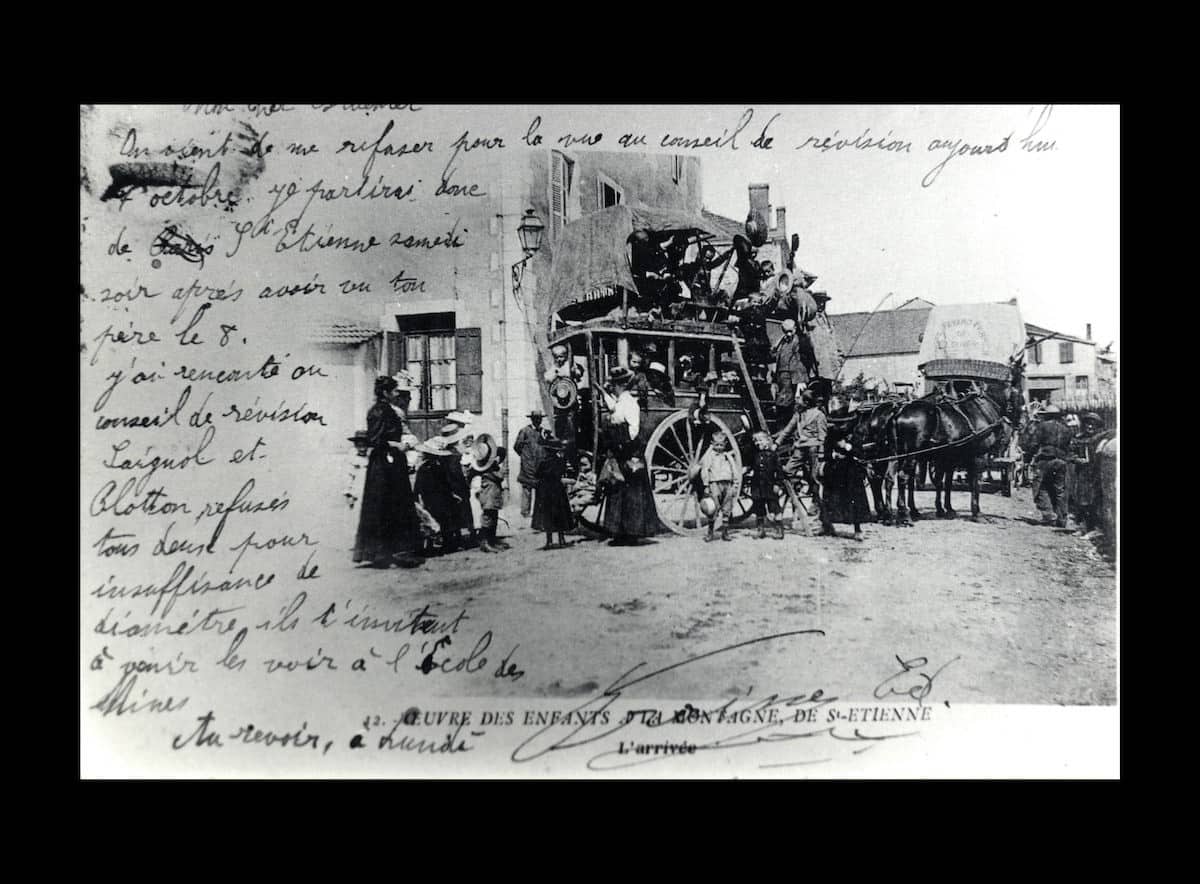 Mon cher
On vient de me refuser pour la vue au conseil de révision aujourd'hui
7 octobre. je partirai donc
de Paris St Etienne samedi
soir après avoir vu ton
père le 8.
j'ai rencontré au
conseil de révision
Laignol et
Blotton, refusés
tous deux pour
insuffisance de
diamètre, ils t'invitent
à venir les voir à l'École des
Mines
Au revoir, à Lundi
12. ŒUVRE DES ENFANTS A LA MONTAGNE, DE St-ETIENNE
L'arrivée